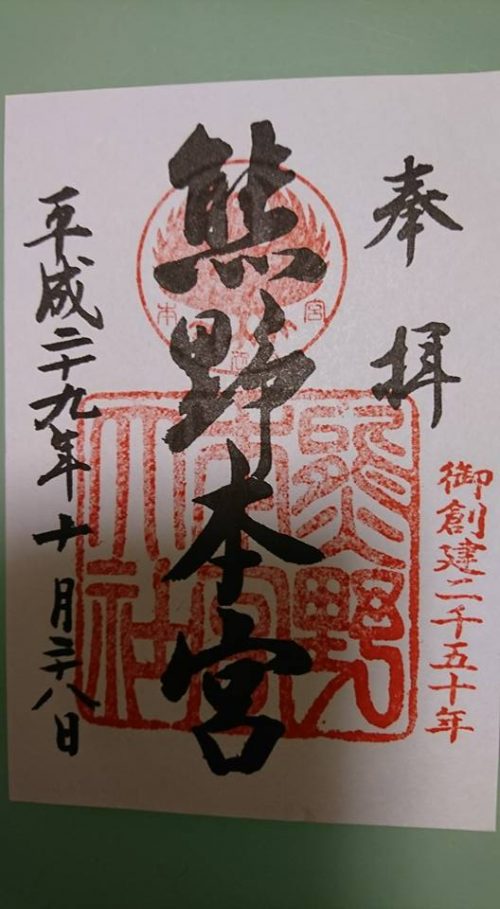 奉拝
御創建二千五十年
熊野本宮
熊野本宮大社
本宮
平成二十九年十月二十八日